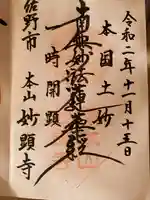 令和二年十一月十五日
本国土妙
南無妙法蓮華経
時開顕
佐野市
本山妙顕寺